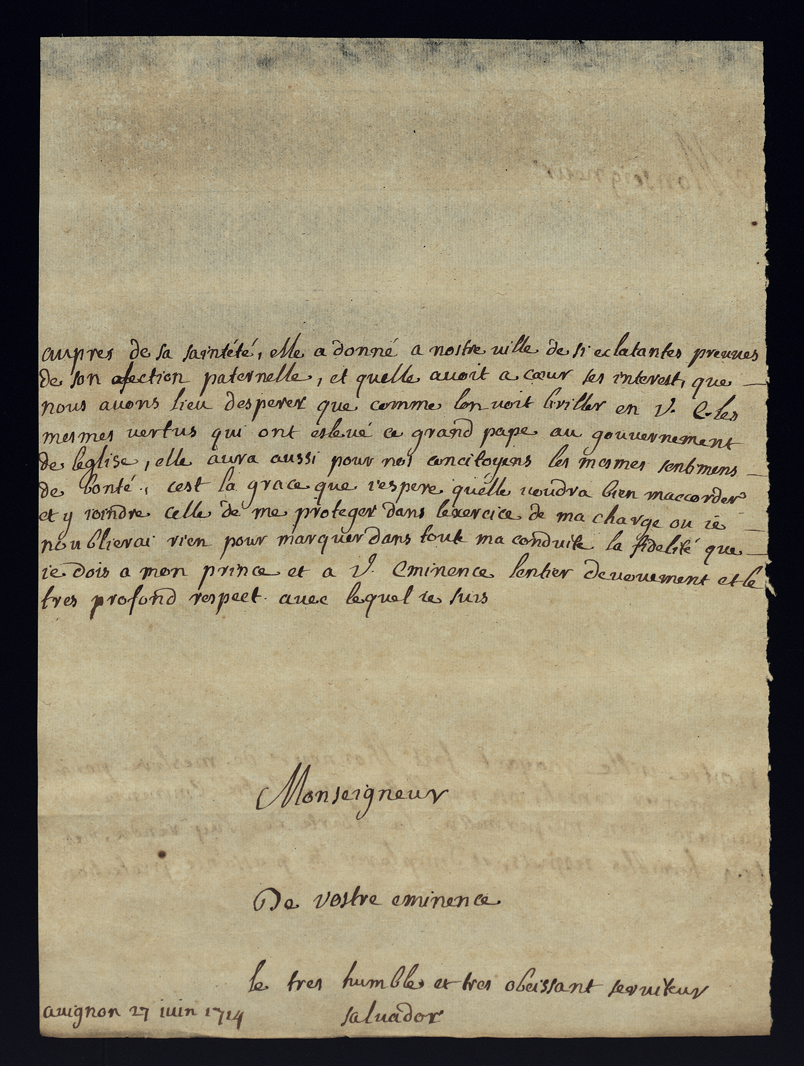 aupres de sa saintété, elle a donné a nostre ville de si eclatantes preuues
de son afection paternelle, et quelle auoit a cœur ses interest, que
nous auons lieu desperer que comme lon voit briller en V. E. les
mesmes vertus qui ont esleué ce grand pape au gouuernement
de leglise, elle aura aussi pour nos concitoyens les mesmes sentimens
de bonté, cest la grace que iespere quelle voudra bien maccorder
et y ioindre celle de me proteger dans lexercice de ma charge ou ie
noublierai rien pour marquer dans toute ma conduite la fidelité que
ie dois a mon prince et a V. Eminence lentier deuouement et le
tres profond respect auec lequel ie suis
Monseigneur
De vostre eminence
le tres humble et tres obeissant seruiteur
auignon 27 iuin 1714
saluador